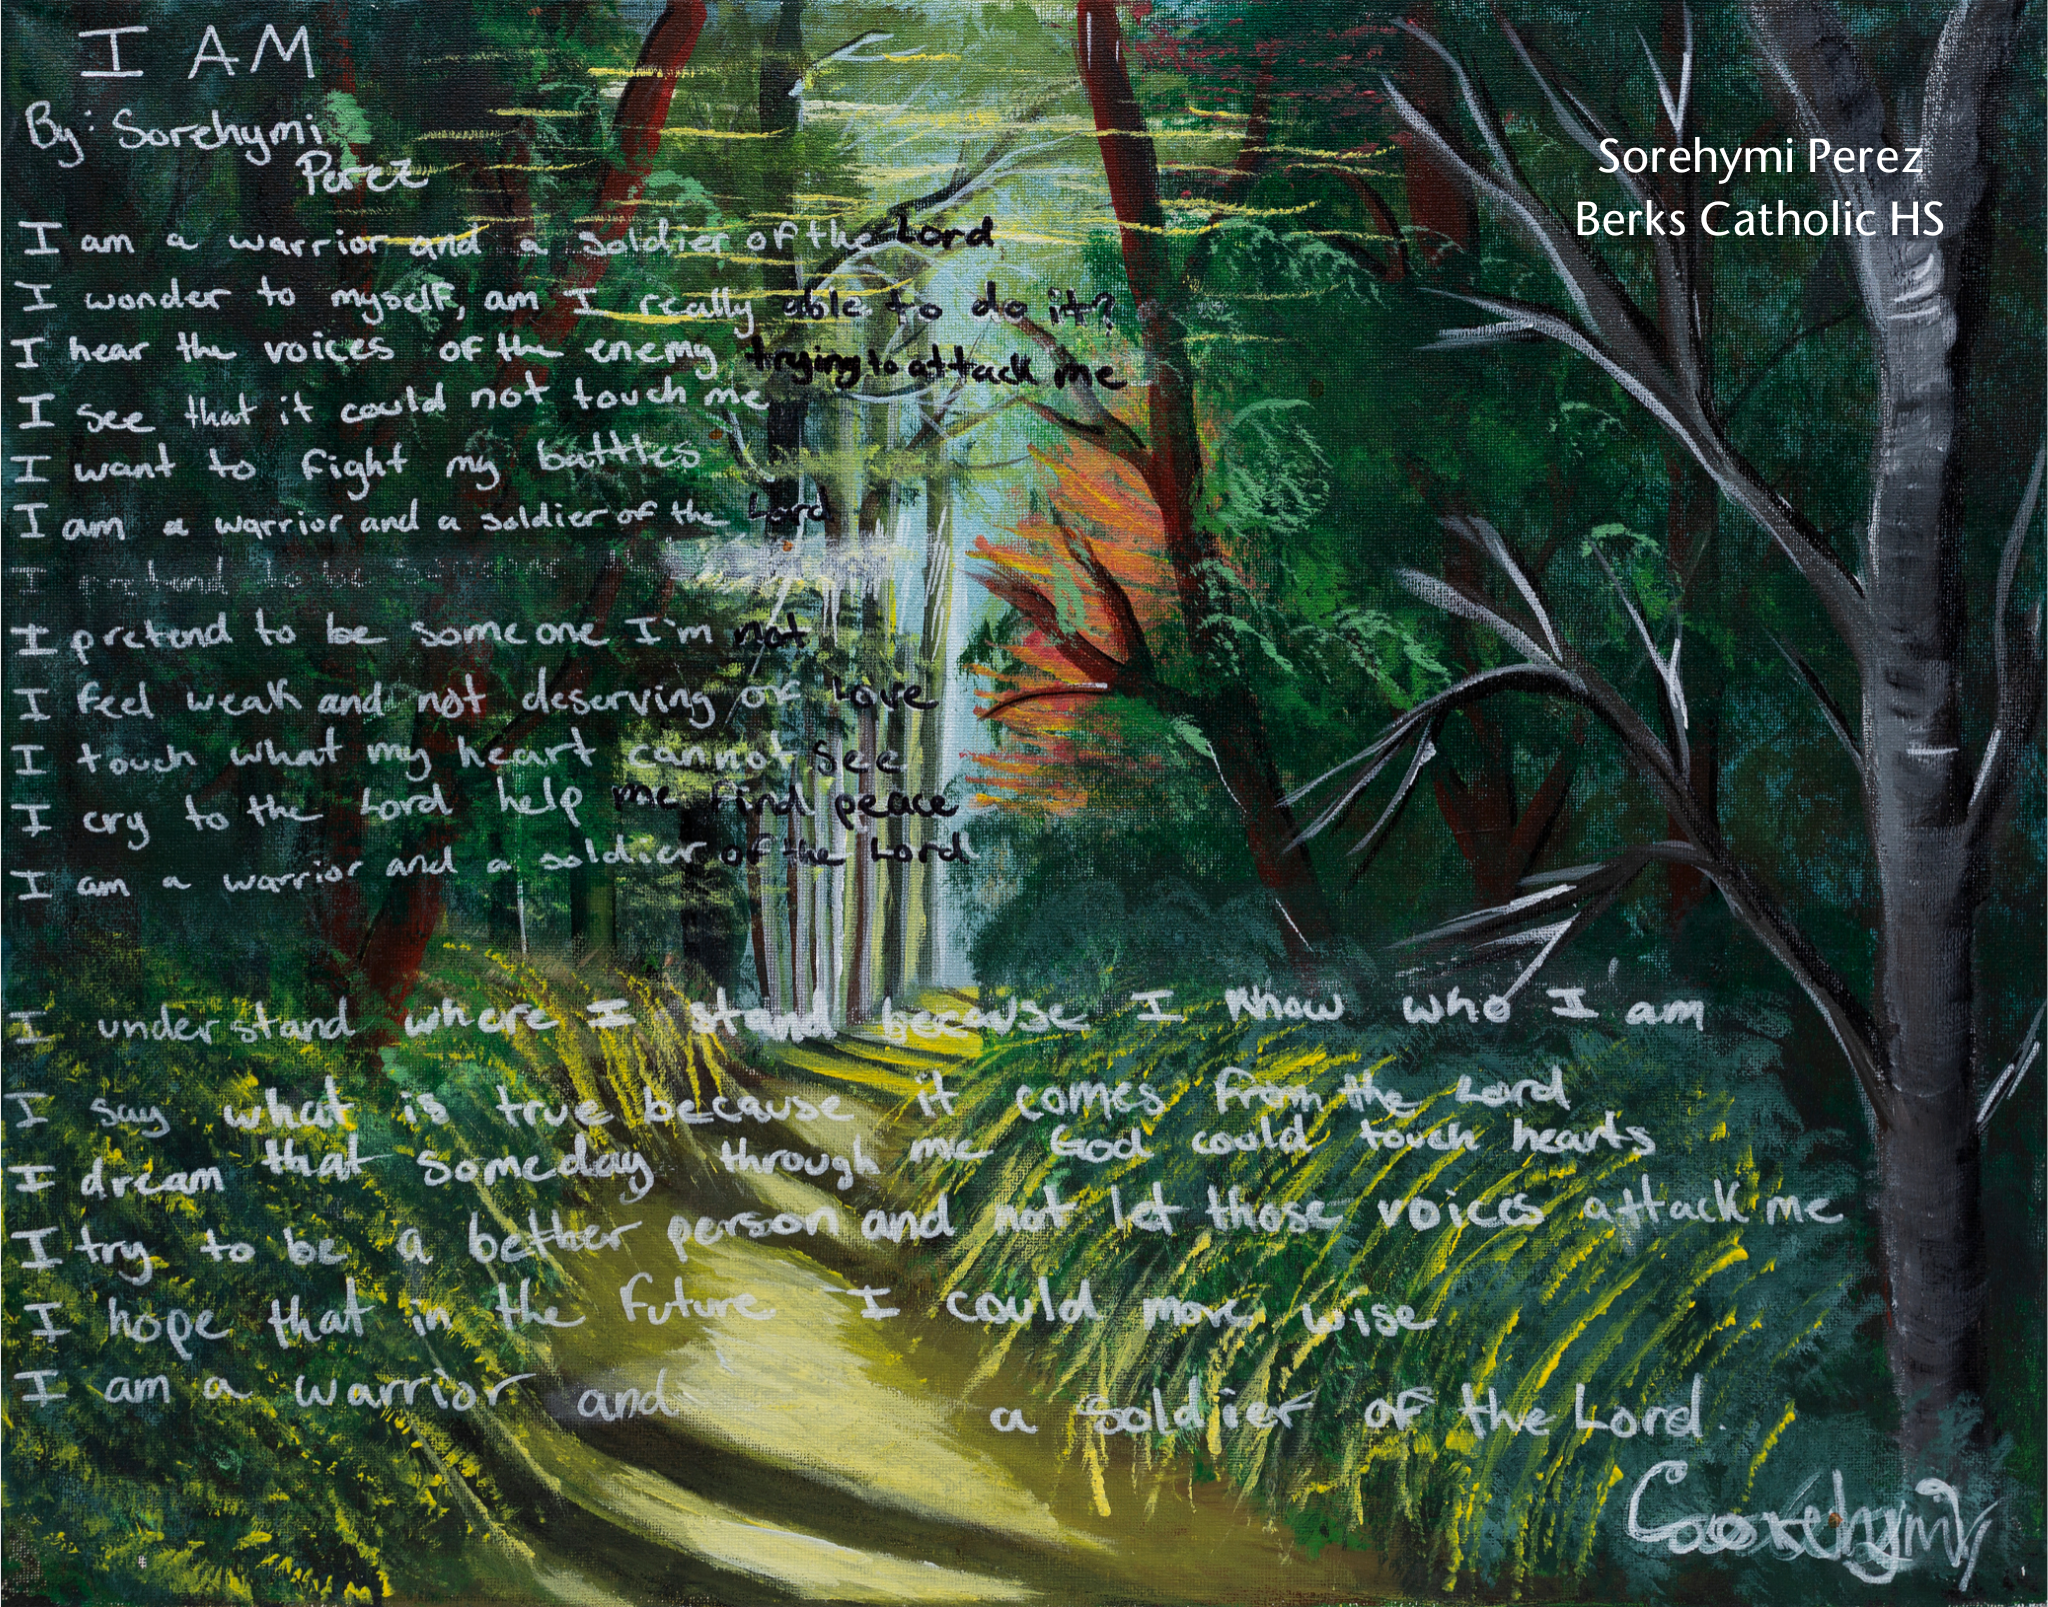 I AM
By: Sorehymi
Perez
Sorehymi Perez
Berks Catholic HS
I am a warrior and a soldier of the Lord
I wonder to myself, am I really able to do it?
I hear the voices of the enemy trying to attack me
I see that it could not touch me
I want to fight my battles
I am a warrior and a soldier of the Lord
I pretend to be
I pretend to be someone I'm not
I feel weak and not deserving of love
I touch what my heart cannot see
I cry to the Lord help me find peace
I am a warrior and a soldier of the Lord
I understand where I stand because I know who I am
I say what is true because it comes from the Lord
I dream that someday through me God could touch hearts
I try to be a bether person and not let those voices attack me
I hope that in the future I could more wise
I am a warrior and a soldier of the Lord.